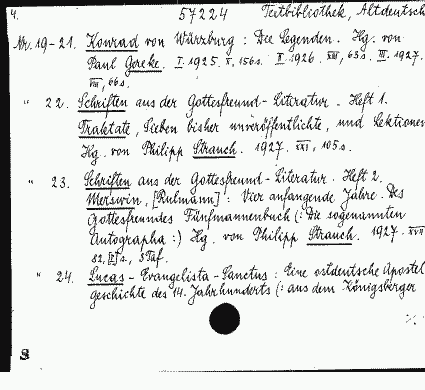 4. 57224 Textbibliothek, Altdeutsch
Nr. 19-21. Konrad von Würzburg : Die Legenden. Hg. von
Paul Gereke. I. 1925. X, 156 s. II. 1926. XIII, 63 s. III. 1927.
VIII, 66 s.
" 22. Schriften aus der Gottesfreund-Literatur. Heft 1.
Traktate, Sieben bisher unveröffentlichte, und Lektionen
Hg. von Philipp Strauch. 1927. XXI, 105 s.
" 23. Schriften aus der Gottesfreund-Literatur. Heft 2.
Merswin, [Rulmann] : Vier anfangende Jahre. Des
Gottesfreundes Fünfmannenbuch (: Die sogenannten
Autographa :) Hg. von Philipp Strauch. 1927. XVII
82, [2] s., 3 Taf.
" 24. Lucas-Evangelista-Sanctus : Eine ostdeutsche Apostel
geschichte des 14. Jahrhunderts (: aus dem Königsberger
./.
S